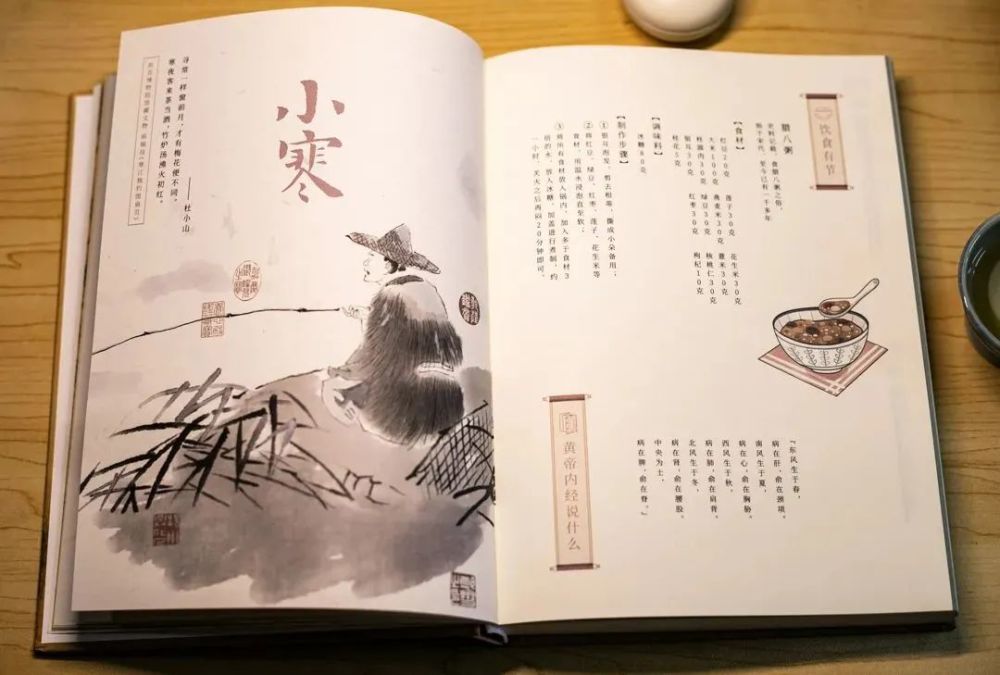 小寒
寻常一样窗前月，才有梅花便不同。
——杜小山
寒夜客来茶当酒，竹炉汤沸火初红。
饮食有节
腊八粥
史料记载，食腊八粥之俗，
始于宋代，至今已有一千多年
【食材】
红豆20克 莲子30克 花生米30克
大米100克 燕麦米30克 薏米30克
桂圆肉30克 绿豆30克 核桃仁30克
银耳30克 红枣30克 枸杞10克
桂花5克
【调味料】
冰糖80克
【制作步骤】
①银耳泡发，剪去根蒂，撕成小朵备用；
②将红豆、绿豆、红枣、莲子、花生米等
食材，用温水浸泡直至软；
③将所有食材放入锅内，加入多于食材3
倍的水，放入冰糖，加盖进行煮制，约
一小时，关火之后再闷20分钟即可。
黄帝内经说什么
“东风生于春，
病在肝，俞在颈项。
南风生于夏，
病在心，俞在胸胁。
西风生于秋，
病在肺，俞在肩背。
北风生于冬，
病在肾，俞在腰股。
中央为土，
病在脾，俞在脊。”